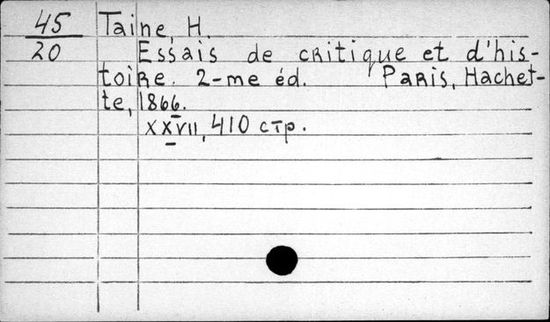 45 Taine, H.
20 Essais de critique et d'his-
toire. 2-me éd. Paris, Hachet-
te, 1866.
XXVII, 410 стр.